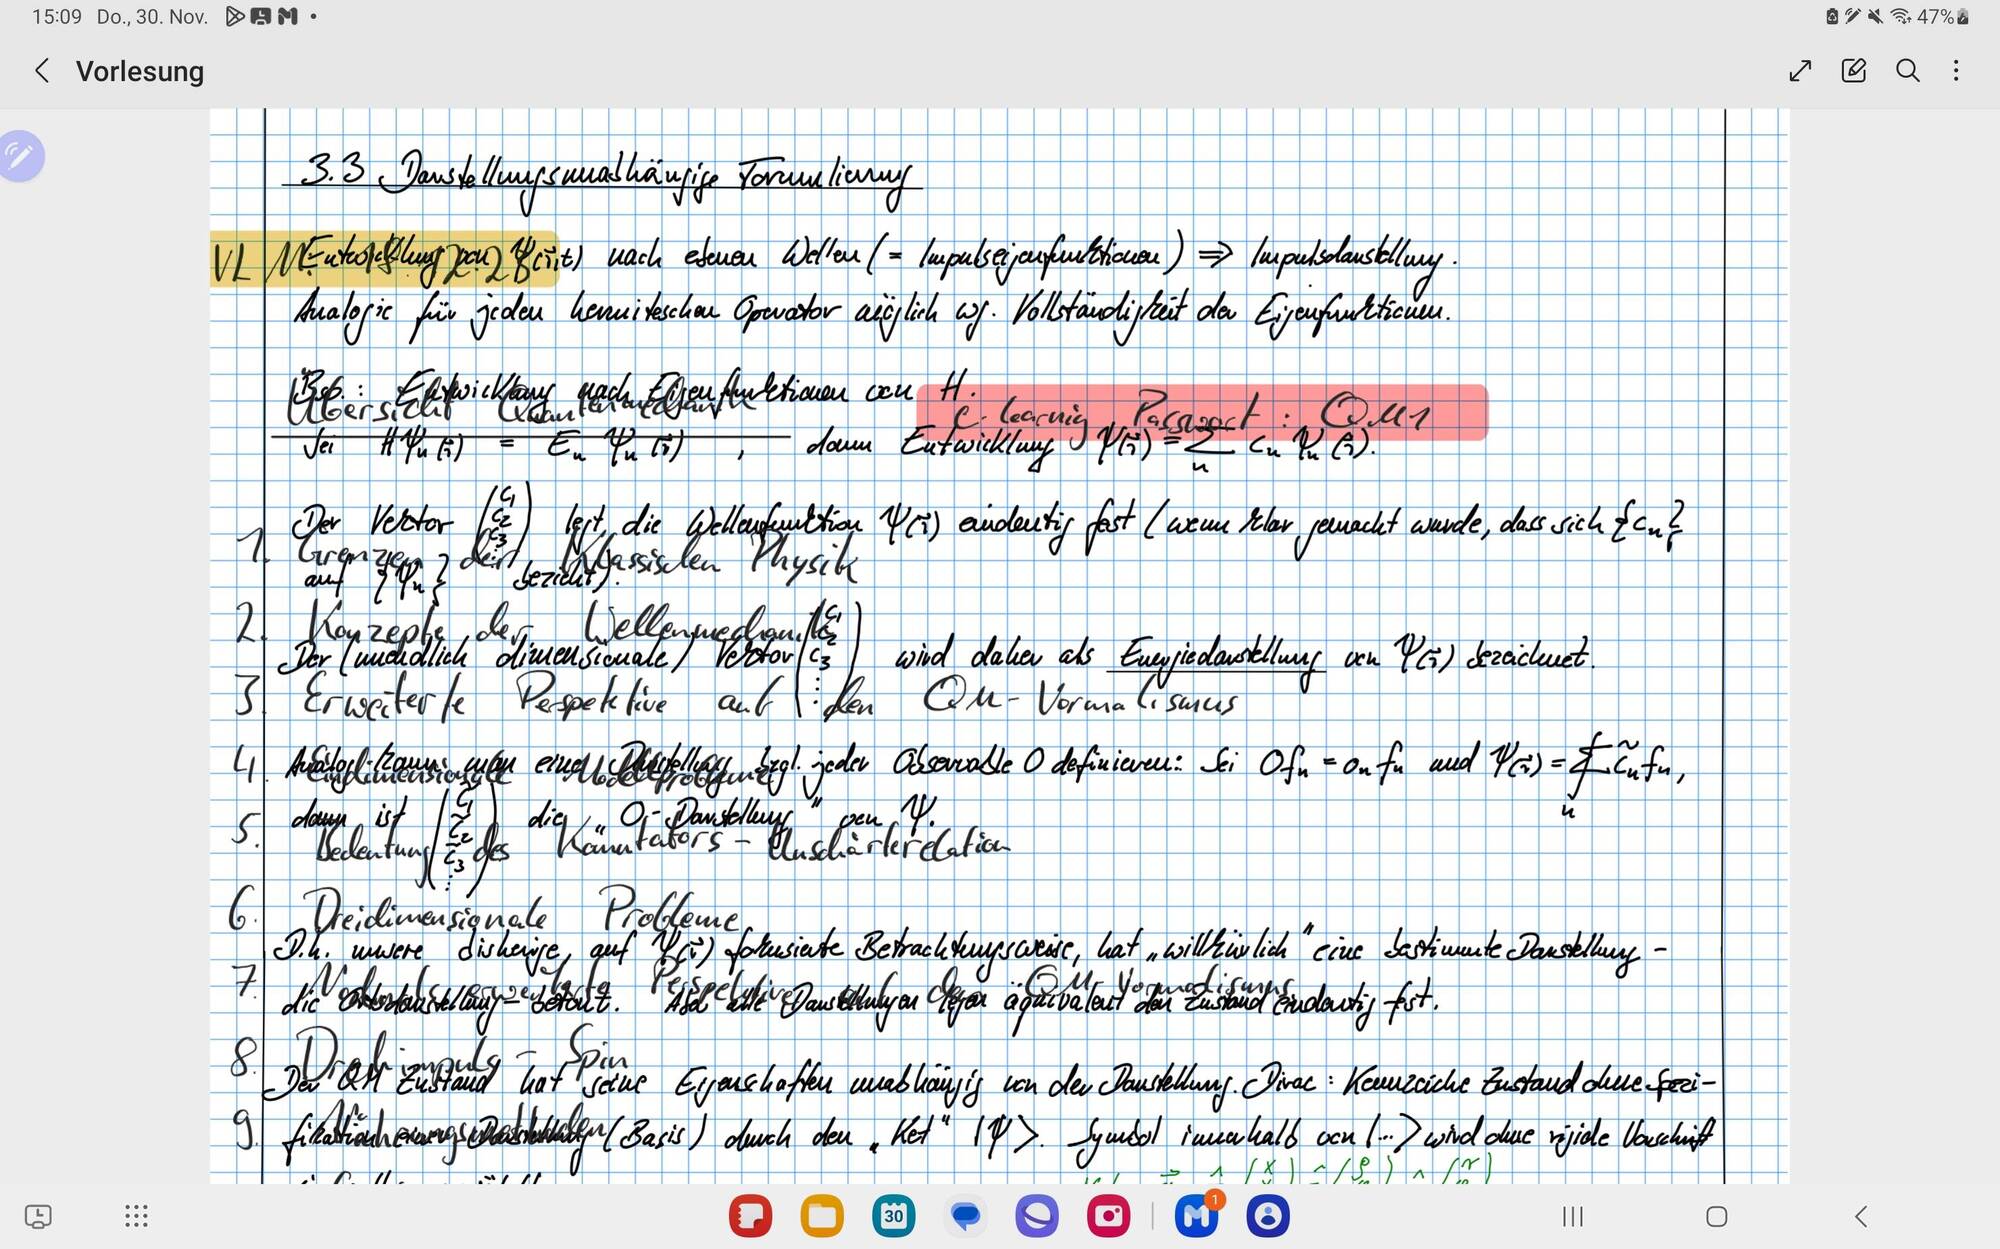 15:09 Do., 30. Nov. 47%
Vorlesung
3.3 Darstellungsunabhängige Formulierung
VL
Entwicklung von Ψ(r⃗,t) nach ebenen Wellen (= Impulseigenfunktionen) ⇒ Impulsdarstellung.
Analogie für jeden hermiteschen Operator möglich wg. Vollständigkeit der Eigenfunktionen.
Bsp.: Entwicklung nach Eigenfunktionen von H.
Übersicht Quantenmechanik
e-learnig Passwort : QM1
Sei HΨn(r⃗) = En Ψn(r⃗) , dann Entwicklung Ψ(r⃗) = Σn cn Ψn(r⃗).
Der Vektor (c1 c2 c3 ⋮) legt die Wellenfunktion Ψ(r⃗) eindeutig fest (wenn klar gemacht wurde, dass sich {cn}
1. Grenzen der Klassischen Physik
auf {Ψn} bezieht).
2. Konzepte der Wellenmechanik
Der (unendlich dimensionale) Vektor (c1 c2 c3 ⋮) wird daher als Energiedarstellung von Ψ(r⃗) bezeichnet.
3. Erweiterte Perspektive auf den QM-Vormalismus
Analog kann man eine Darstellung bzgl. jeder Observable O definieren: Sei Ofn = onfn und Ψ(r⃗) = Σn c̃n fn,
4. Eindimensionale Modellprobleme
dann ist (c̃1 c̃2 c̃3 ⋮) die „O-Darstellung" von Ψ.
5. Bedeutung des Kommutators - Unschärferelation
6. Dreidimensionale Probleme
D.h. unsere bisherige, auf Ψ(r⃗) fokusierte Betrachtungsweise, hat „willkürlich" eine bestimmte Darstellung -
7. Perspektive QM Vormalismus
die Ortsdarstellung - betont. Aber alle Darstellungen legen äquivalent den Zustand eindeutig fest.
8. Drehimpuls - Spin
Der QM Zustand hat seine Eigenschaften unabhängig von der Darstellung. Dirac: Kennzeichne Zustand ohne Spezi-
9. Näherungsmethoden
fikation einer Darstellung (Basis) durch den „Ket" |Ψ>. Symbol innerhalb von |...> wird ohne rigide Vorschrift
30
1